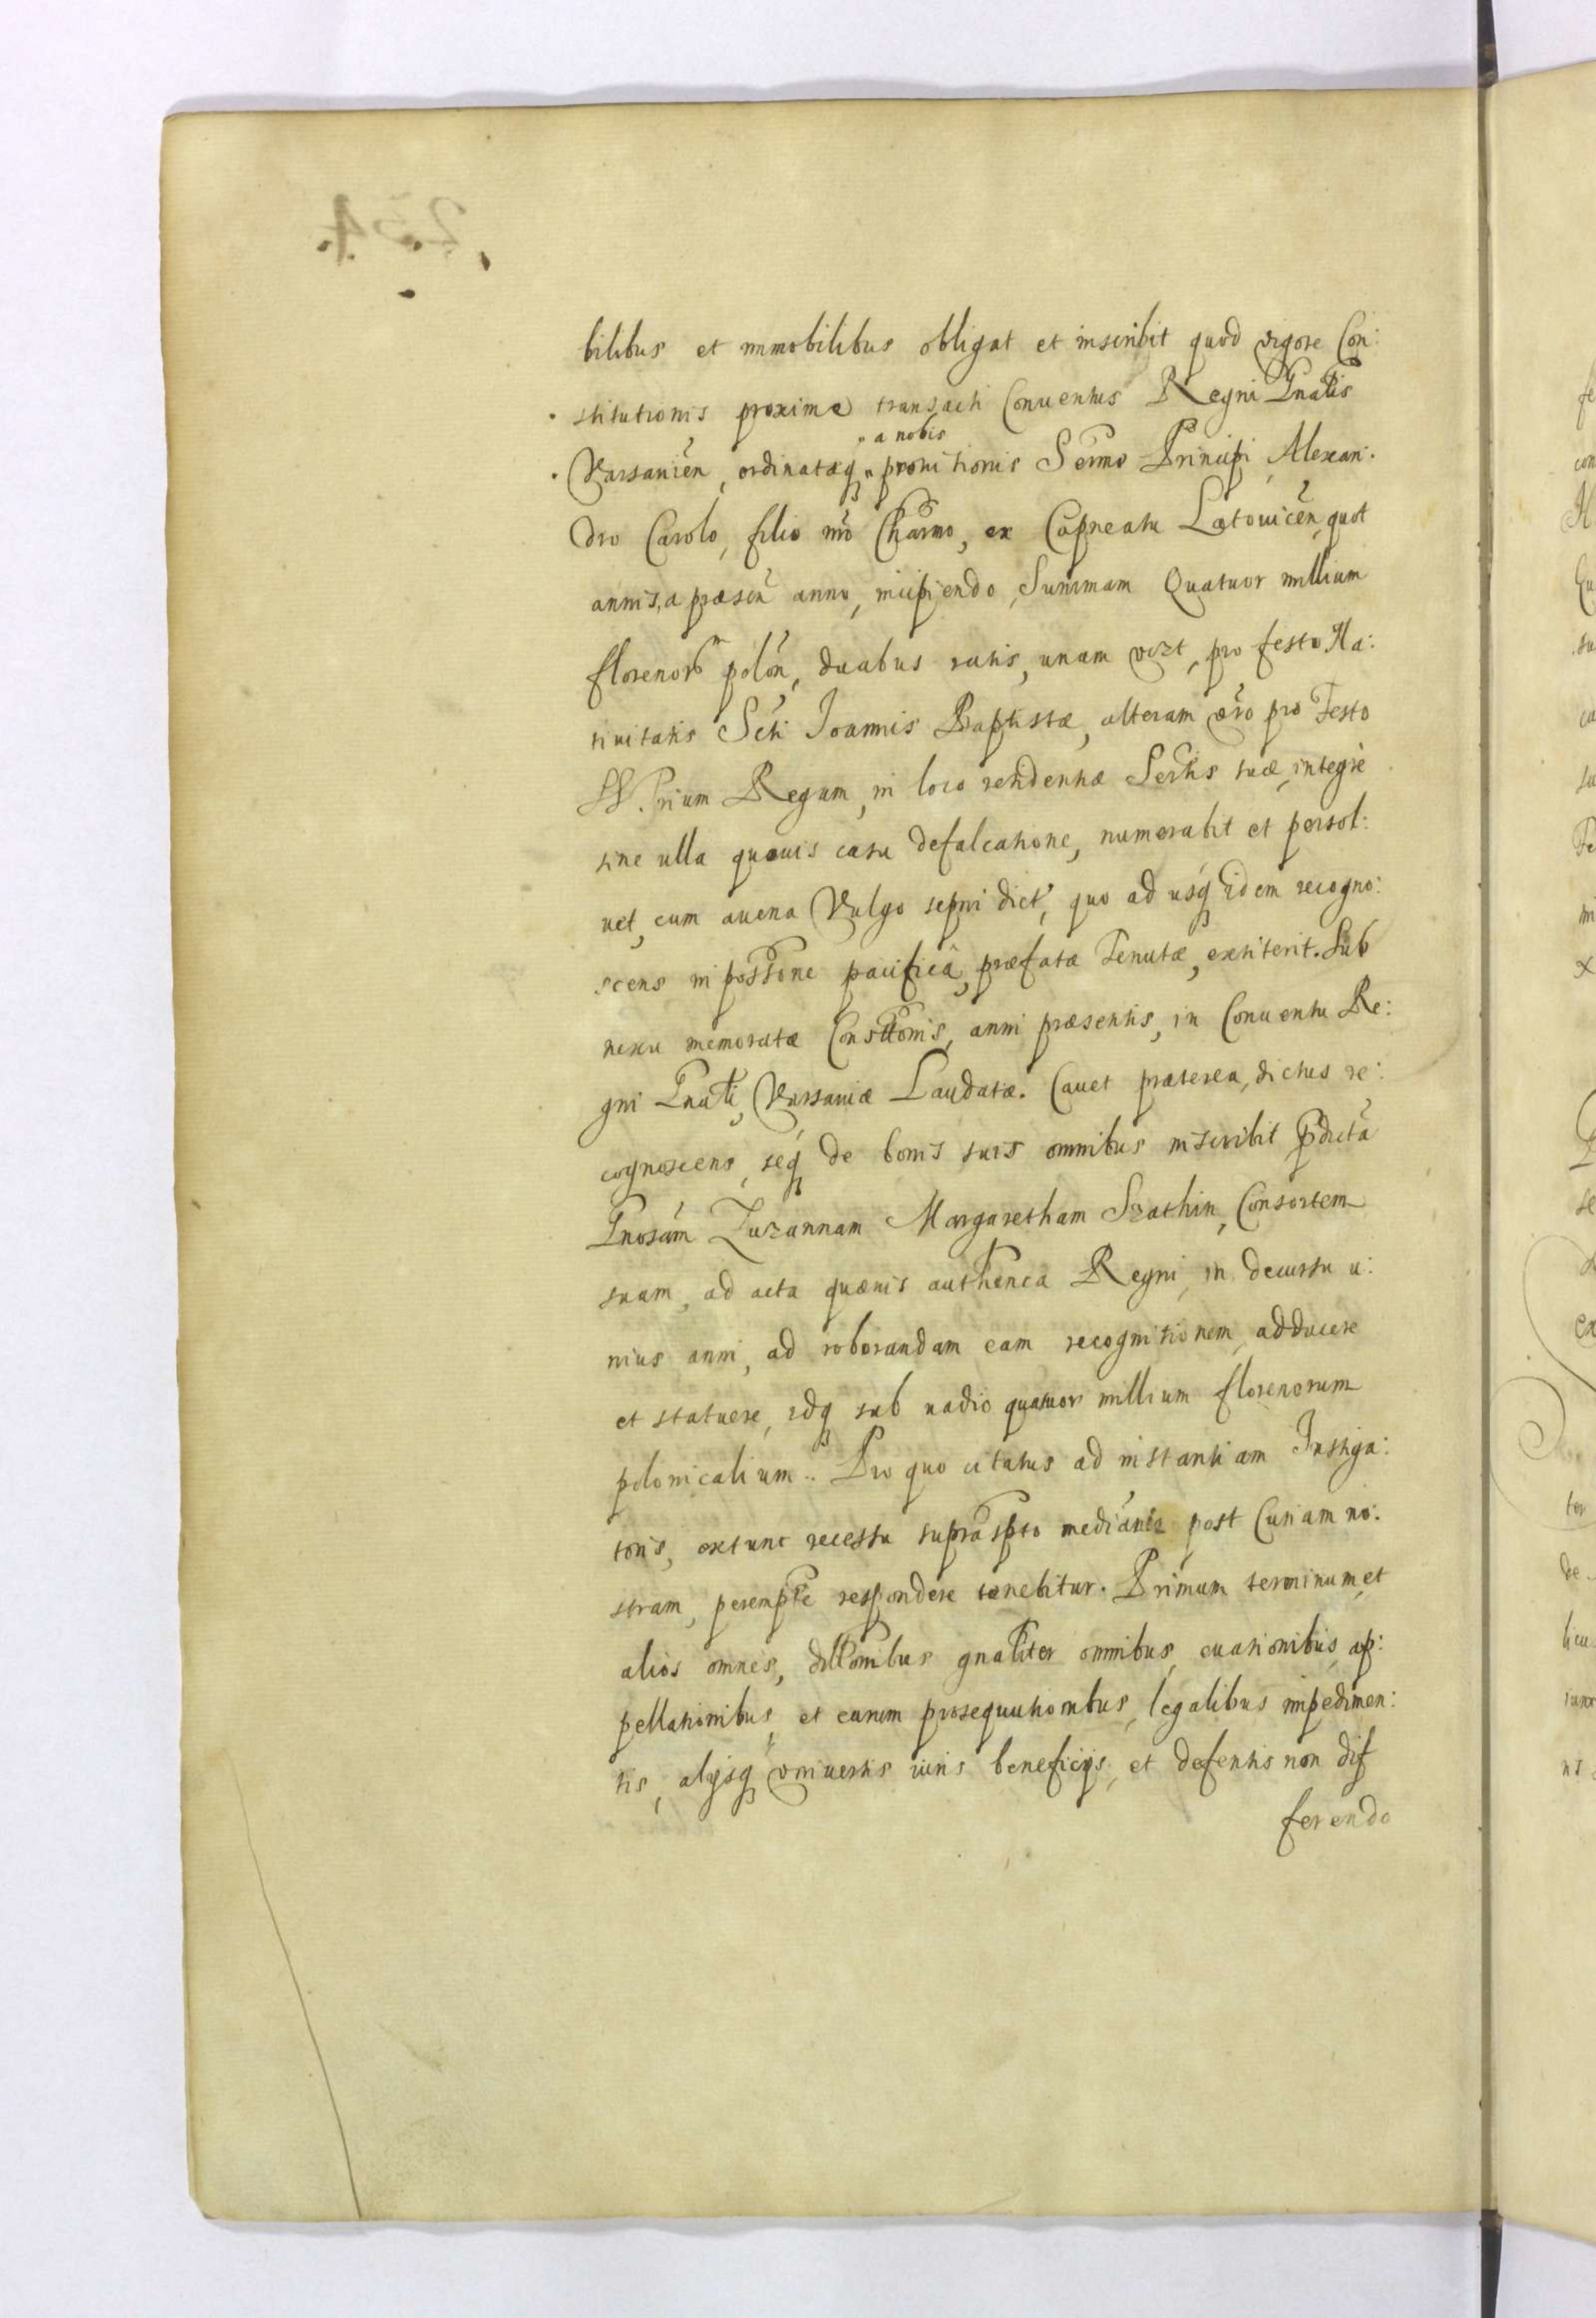 bilibus et immobilibus obligat et inscribit quod vigore Con:
stitutionis proxime transacti Conuentus Regni Gnalis
a nobis
Varsauien, ordinatæq prouitionis Sermo Principi Alexan:
dro Carolo, filio nro Charmo, ex Capneatu Latouicen, quot
annis, a præsen anno, incipiendo, Summam Quatuor millium
florenor polon, duabus ratis, unam vizt, pro festo Na:
tiuitatis Scti Joannis Baptistæ, alteram vero pro Festo
SS. Trium Regum, in loco residentiæ Sertis suæ, integre
sine ulla quouis casu defalcatione, numerabit et persol:
uet, cum auena Vulgo sepni dict, quo ad usq idem recogno:
scens in possione pacificâ, præfatæ Tenutæ, extiterit. Sub
nexu memoratæ Constttonis, anni præsentis, in Conuentu Re:
gni Gnali, Varsauiæ Laudatæ. Cauet præterea, dictus re:
cognoscens, seq de bonis suis omnibus inscribit pdicta
Gnosam Zuzannam Margaretham Szathin, Consortem
suam, ad acta quæuis authenca Regni, in decursu u:
nius anni, ad roborandam eam recognitionem, adducere
et statuere, idq sub vadio quatuor millium florenorum
polonicalium. Pro quo citatus ad instantiam Instiga:
toris, extunc recessu suprasspto medianie post Curiam no:
stram, perempte respondere tenebitur. Primum terminum, et
alios omnes, dillonibus gnaliter omnibus, euationibus, ap:
pellationibus, et earum prosequutionibus, legalibus impedimen:
tis, alijsq vniuersis iuris beneficijs, et defensis non dif
ferendo